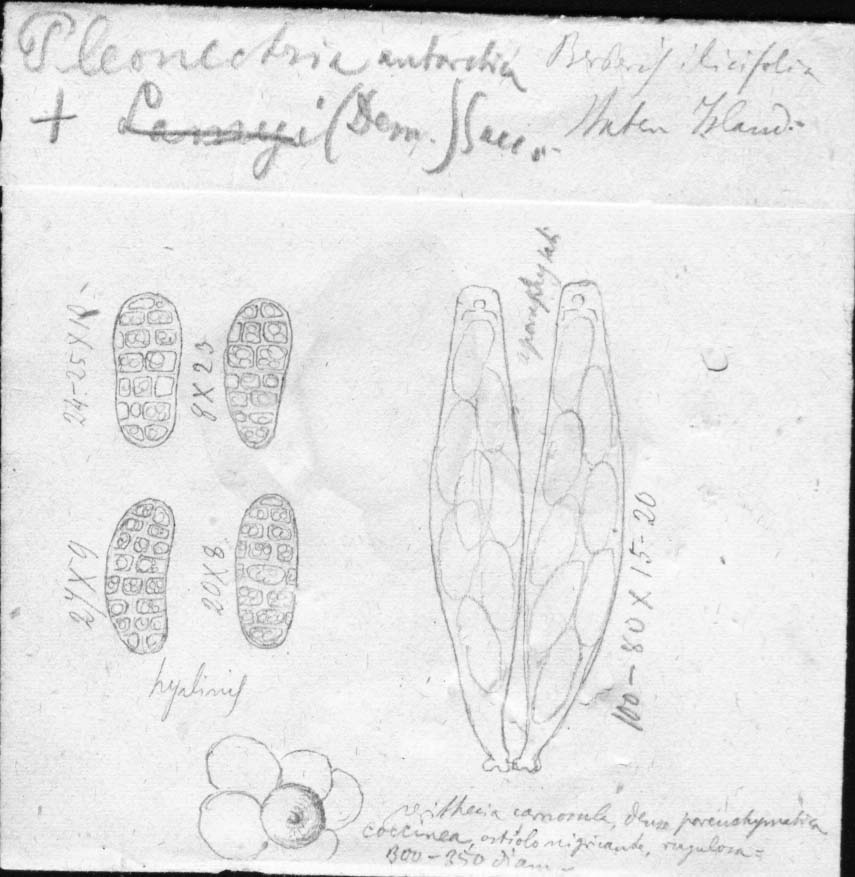 Pleonectria antarctica Berberis ilicifolia
+ Lamyi (Desm.) Sacc. Staten Island.
24-25 X 10
8 X 23
27 X 9
20 X 8
hyalinis
aparaphysati
100-80 X 15-20
perithecia carnosula, dense parenchymatica
coccinea, ostiolo nigricante, rugulosa=
300-350 diam-